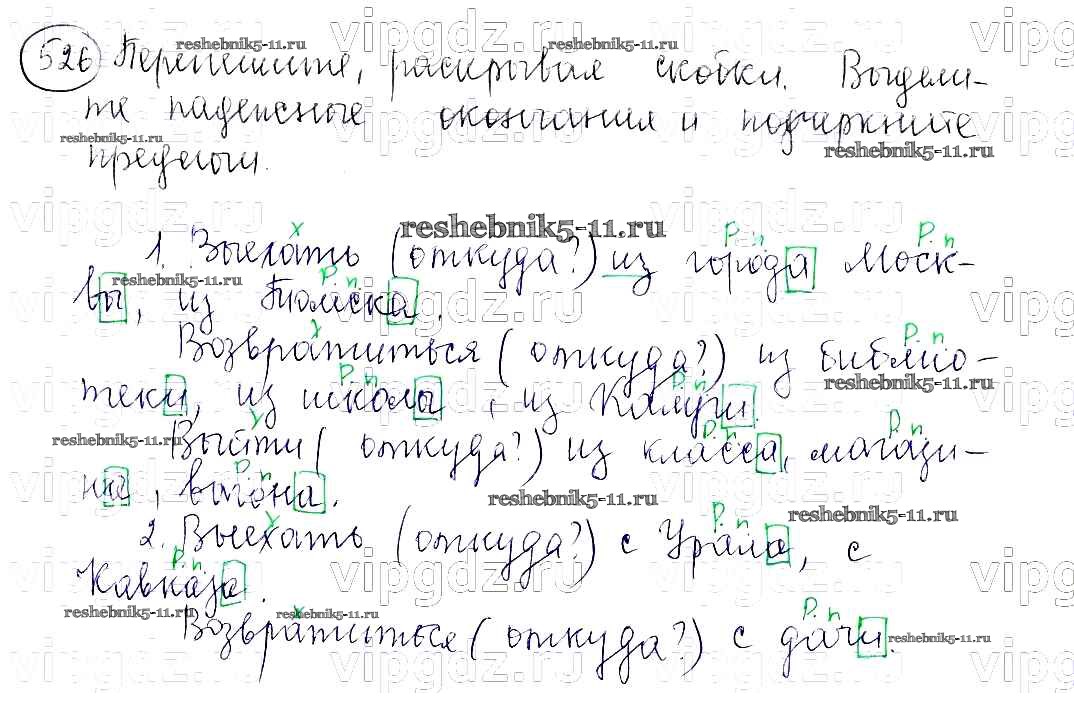 526 Перепишите, раскрывая скобки. Выдели-
те падежные окончания и подчеркните
предлоги.
1. Выехать (откуда?) из города Моск-
вы, из Томска.
Возвратиться (откуда?) из библио-
теки, из школы, из Калуги.
Выйти (откуда?) из класса, магази-
на, вагона.
2. Выехать (откуда?) с Урала, с
Кавказа.
Возвратиться (откуда?) с дачи.